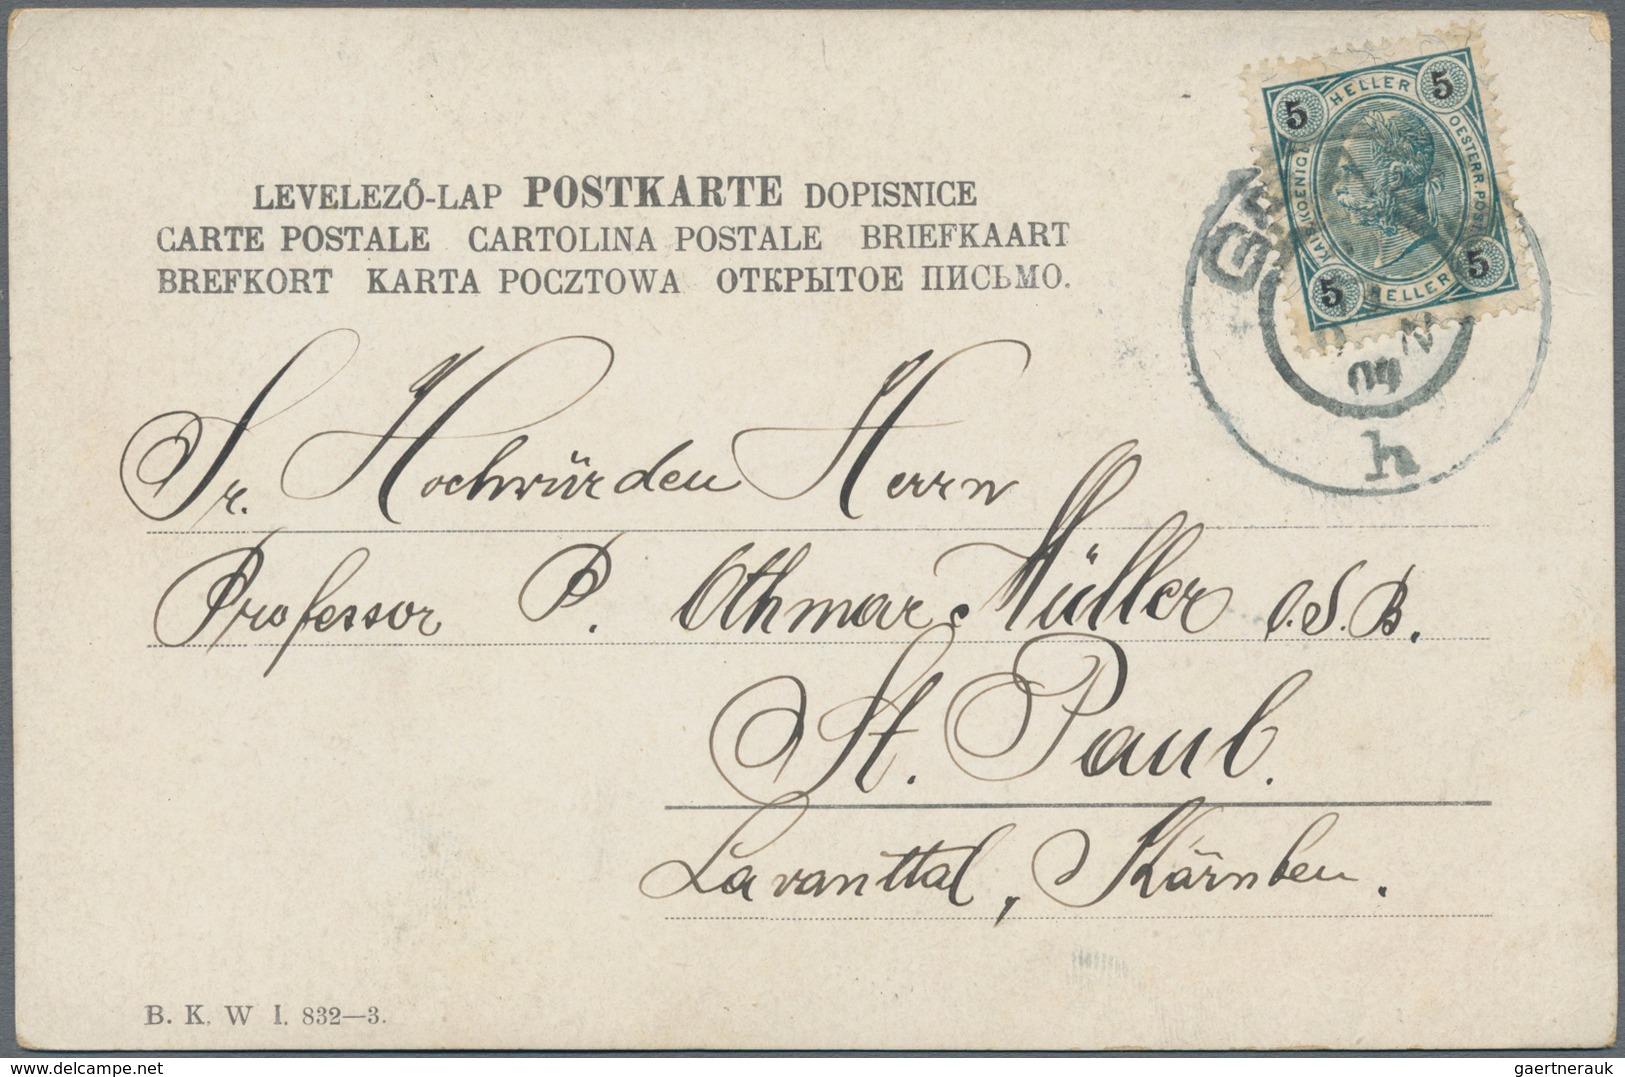 LEVELEZŐ-LAP POSTKARTE DOPISNICE
CARTE POSTALE CARTOLINA POSTALE BRIEFKAART
BREFKORT KARTA POCZTOWA ОТКРЫТОЕ ПИСЬМО.
5 HELLER 5
OESTERR. POST
5 HELLER 5
04
h
Sr. Hochwürden Herrn
Professor P. Othmar Müller O.S.B.
St. Paul.
Lavanttal, Kärnten.
B. K. W I. 832—3.
www.delcampe.net
gaertnerauk